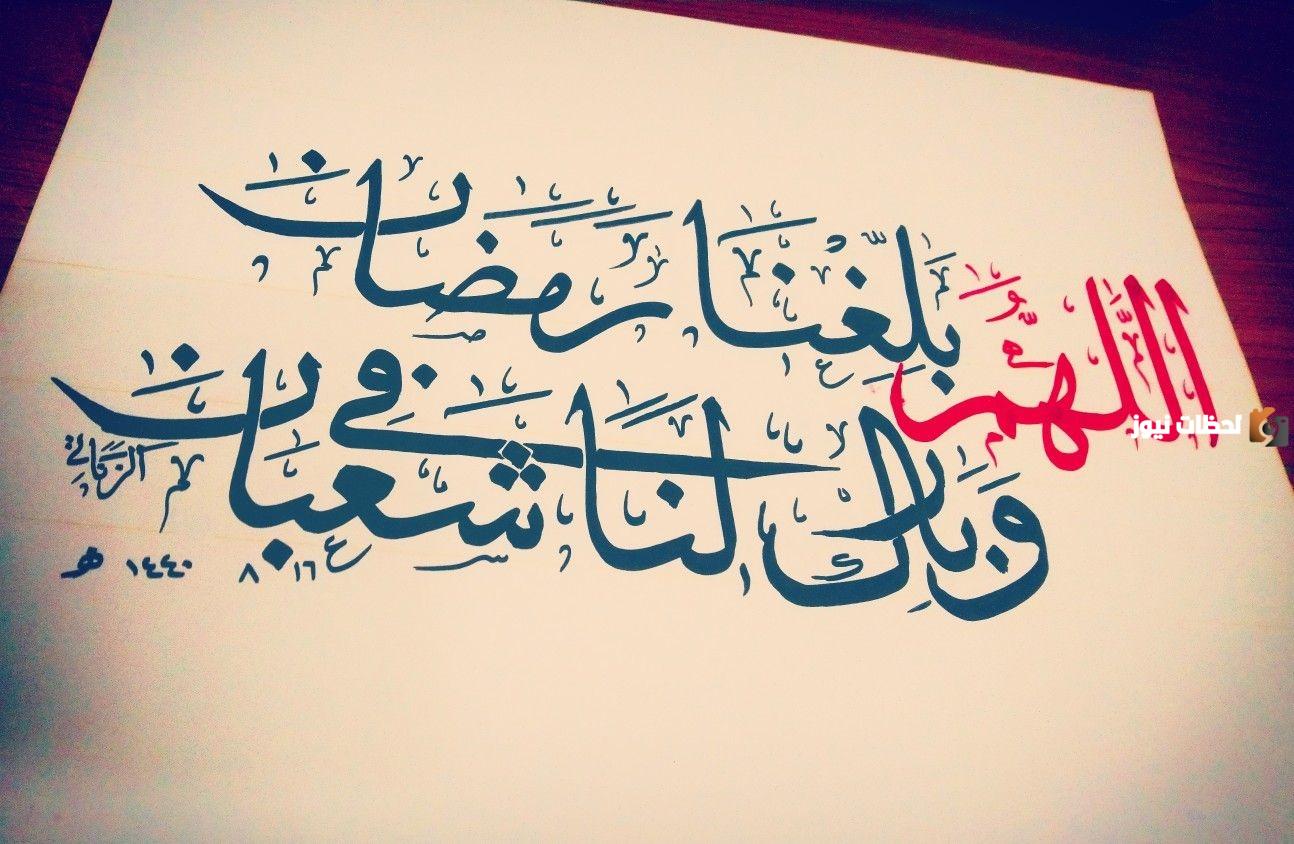 اللَّهُمَّ بَلِّغْنَا رَمَضَان
وَبَارِك لَنَا فِي شَعْبَان
١٦ ٨ ١٤٤٠ هـ
لحظات نيوز